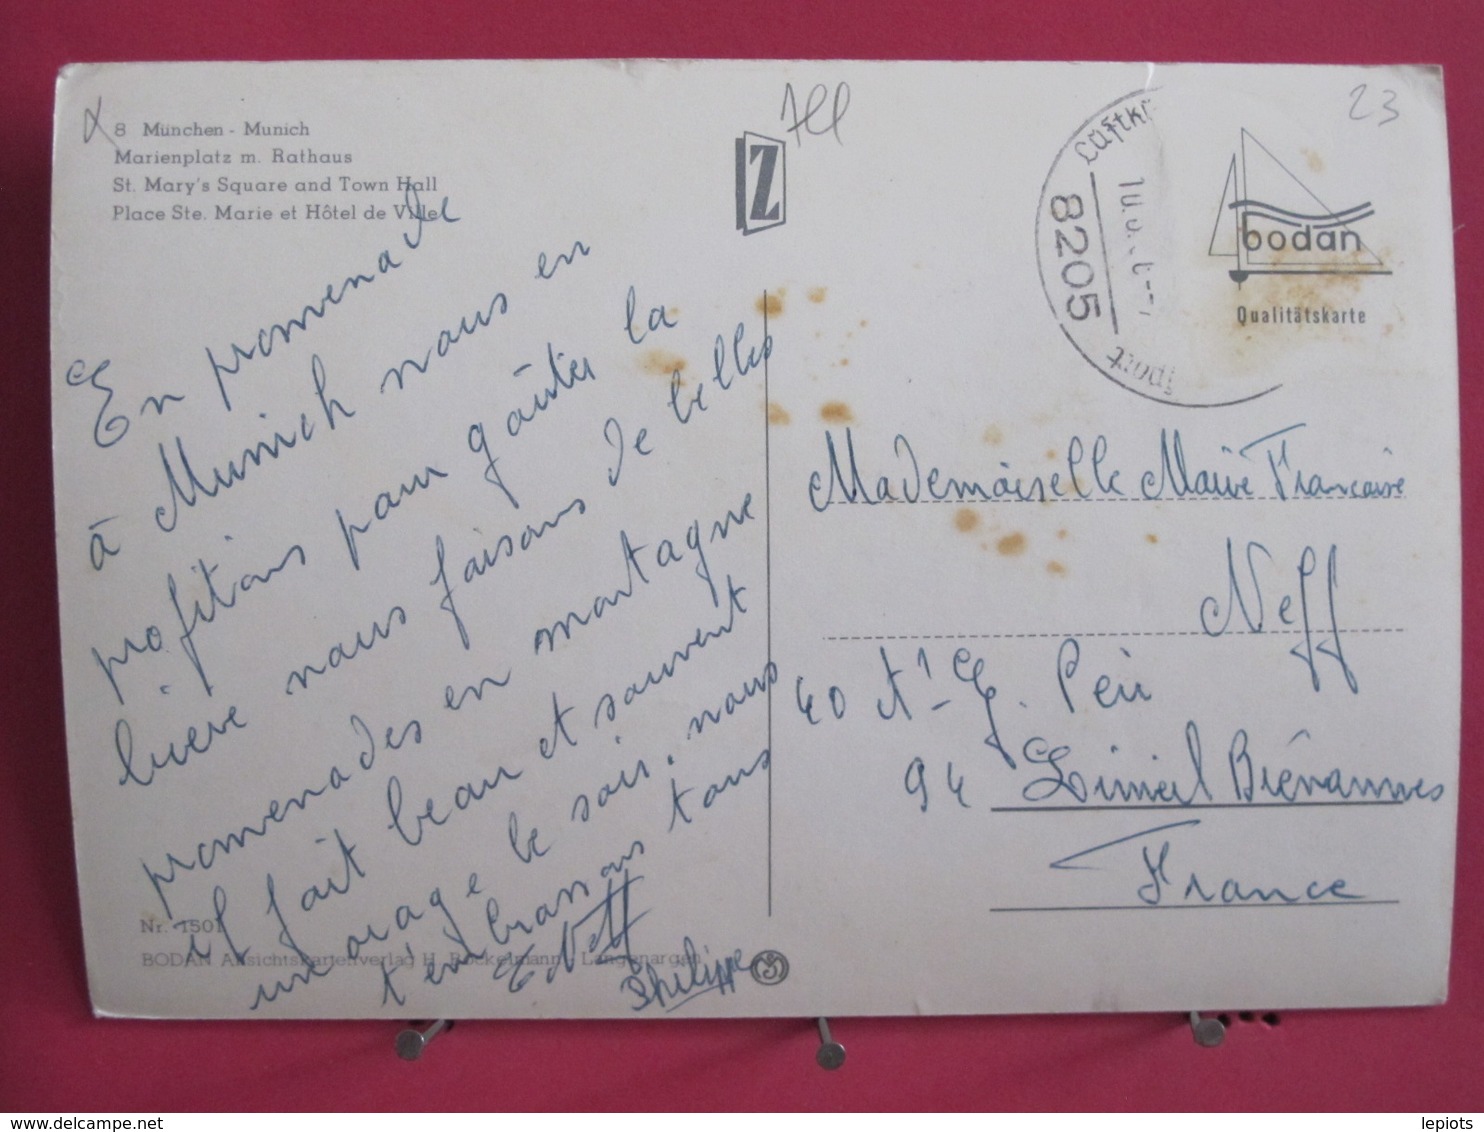 8 München - Munich
Marienplatz m. Rathaus
St. Mary's Square and Town Hall
Place Ste. Marie et Hôtel de Ville
All
Z
23
8205
bodan
Qualitätskarte
En promenade
à Munich nous en
profitons pour goûter la
bière nous faisons de belles
promenades en montagne
il fait beau et souvent
un orage le soir. nous
t'embrassons tous
E Neff
Philippe
Mademoiselle Marie Françoise
Neff
40 At- G. Péri
94 Limeil Brévannes
France
Nr. 1501
BODAN Ansichtskartenverlag H. Bockelmann - Langenargen
lepiots